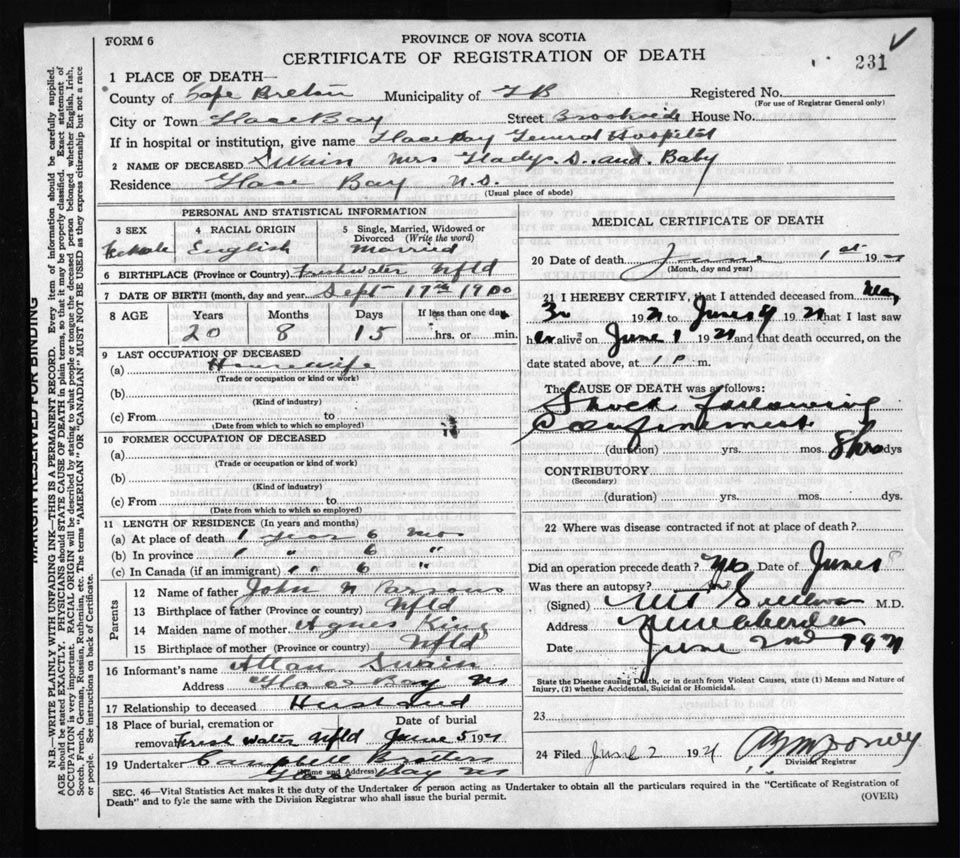 FORM 6
PROVINCE OF NOVA SCOTIA
CERTIFICATE OF REGISTRATION OF DEATH
231
1 PLACE OF DEATH—
County of Cape Breton Municipality of GB Registered No.
(For use of Registrar General only)
City or Town Glace Bay Street Brookside House No.
If in hospital or institution, give name Glace Bay General Hospital
2 NAME OF DECEASED Swain Mrs Gladys. S. and. Baby
Residence Glace Bay N.S.
(Usual place of abode)
PERSONAL AND STATISTICAL INFORMATION
3 SEX
Female
4 RACIAL ORIGIN
English
5 Single, Married, Widowed or Divorced (Write the word)
Married
6 BIRTHPLACE (Province or Country) Freshwater Nfld
7 DATE OF BIRTH (month, day and year) Sept 17th 1900
8 AGE Years Months Days If less than one day
20 8 15 hrs. or min.
9 LAST OCCUPATION OF DECEASED
(a) Housewife
(Trade or occupation or kind or work)
(b)
(Kind of industry)
(c) From to
(Date from which to which so employed)
10 FORMER OCCUPATION OF DECEASED
(a)
(Trade or occupation or kind of work)
(b)
(Kind of industry)
(c) From to
(Date from which to which so employed)
11 LENGTH OF RESIDENCE (In years and months)
(a) At place of death 1 year 6 mos
(b) In province " " 6 "
(c) In Canada (if an immigrant) " " 6 "
Parents
12 Name of father John N Parsons
13 Birthplace of father (Province or country) Nfld
14 Maiden name of mother Agnes King
15 Birthplace of mother (Province or country) Nfld
16 Informant's name Allan Swain
Address Glace Bay NS
17 Relationship to deceased Husband
18 Place of burial, cremation or removal Fresh Water Nfld
Date of burial June 5 1921
19 Undertaker Campbell
(Name and Address) Glace Bay NS
MEDICAL CERTIFICATE OF DEATH
20 Date of death June 1st 1921
(Month, day and year)
21 I HEREBY CERTIFY, that I attended deceased from May
30 1921 to June 1921 that I last saw
her alive on June 1 1921 and that death occurred, on the
date stated above, at m.
The CAUSE OF DEATH was as follows:
Shock following
Confinement
(duration) yrs. mos. 8 hrs dys
CONTRIBUTORY
(Secondary)
(duration) yrs. mos. dys.
22 Where was disease contracted if not at place of death?
Did an operation precede death? Date of June
Was there an autopsy?
(Signed) M.D.
Address New Aberdeen
Date June 2nd 1921
State the Disease causing Death, or in death from Violent Causes, state (1) Means and Nature of
Injury, (2) whether Accidental, Suicidal or Homicidal.
23
24 Filed June 2 1921
Division Registrar
SEC. 46—Vital Statistics Act makes it the duty of the Undertaker or person acting as Undertaker to obtain all the particulars required in the "Certificate of Registration of
Death" and to fyle the same with the Division Registrar who shall issue the burial permit. (OVER)
MARGIN RESERVED FOR BINDING
N.B.—WRITE PLAINLY WITH UNFADING INK—THIS IS A PERMANENT RECORD. Every item of information should be carefully supplied.
AGE should be stated EXACTLY. PHYSICIANS should STATE CAUSE OF DEATH in plain terms, so that it may be properly classified. Exact statement of
OCCUPATION is very important. RACIAL ORIGIN will be described by stating to what people or tongue the deceased person belonged whether English, Irish,
Scotch, French, German, Russian, Ruthenian, etc. The terms "AMERICAN" OR "CANADIAN" MUST NOT BE USED as they express citizenship but not a race
or people. See instructions on back of Certificate.